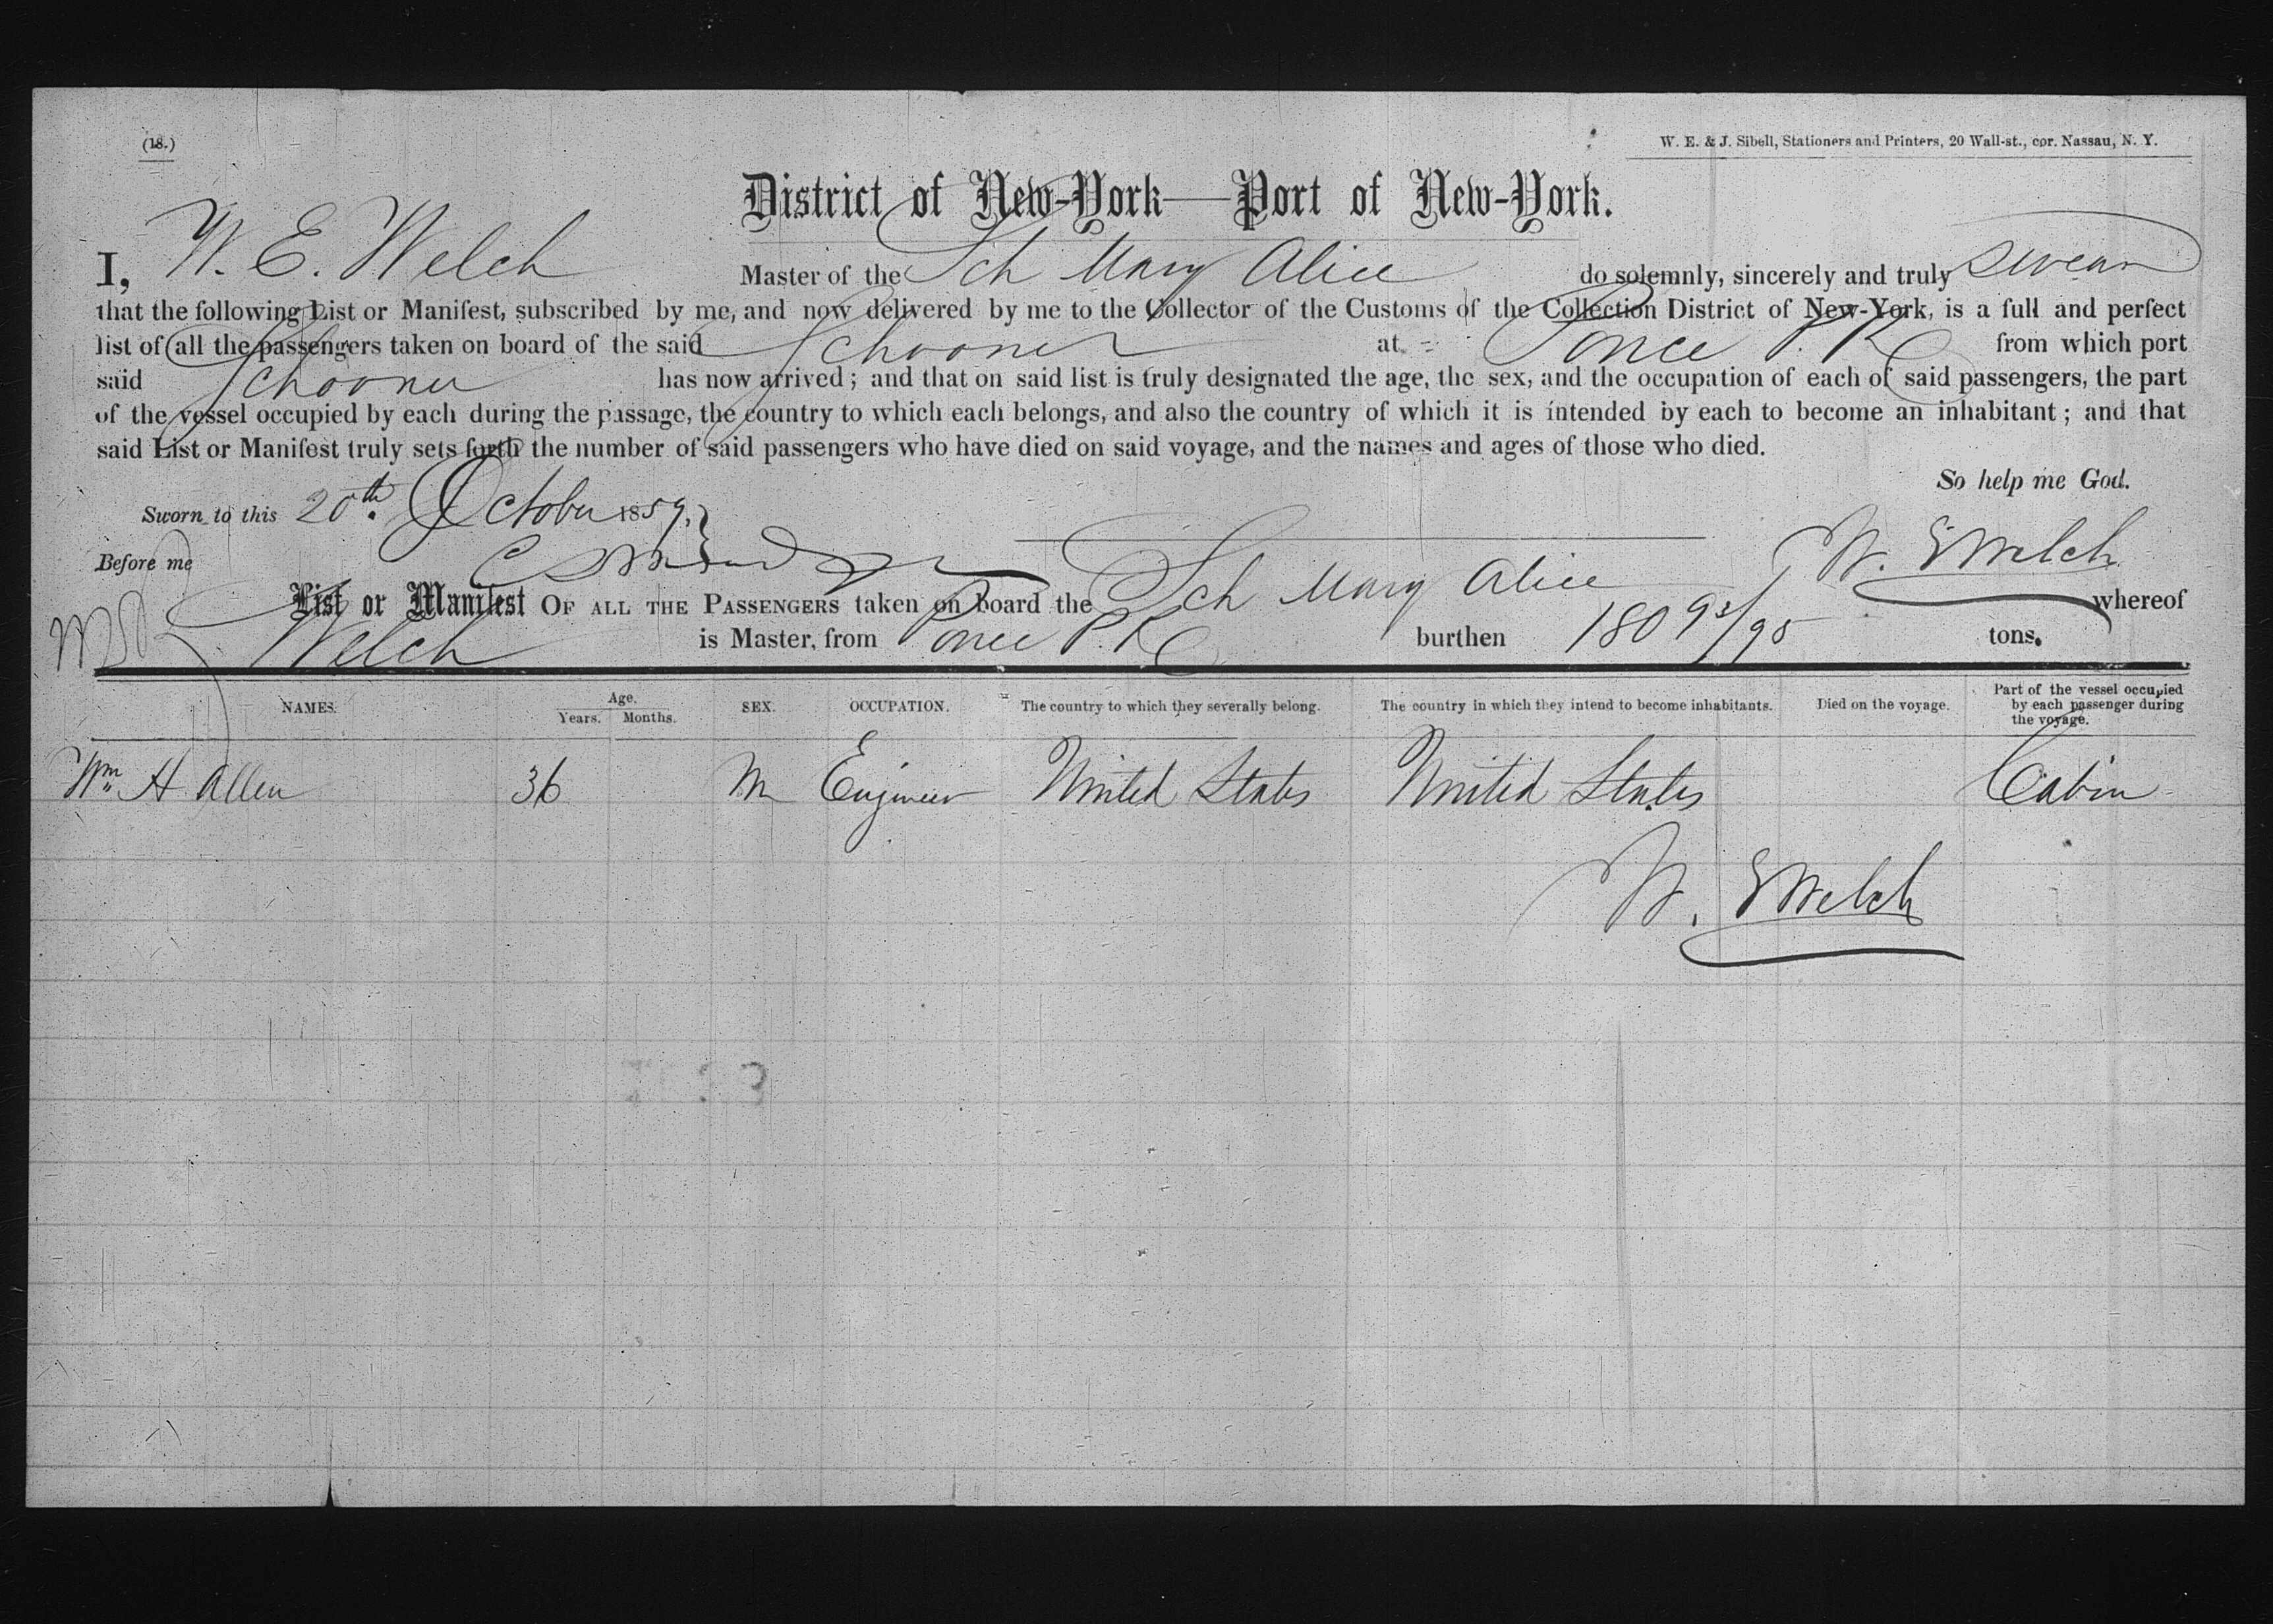 (18.)
W. E. & J. Sibell, Stationers and Printers, 20 Wall-st., cor. Nassau, N. Y.
District of New-York—Port of New-York.
I, W. E. Welch Master of the Sch Mary Alice do solemnly, sincerely and truly swear
that the following List or Manifest, subscribed by me, and now delivered by me to the Collector of the Customs of the Collection District of New-York, is a full and perfect
list of all the passengers taken on board of the said Schooner at Ponce P. R from which port
said Schooner has now arrived; and that on said list is truly designated the age, the sex, and the occupation of each of said passengers, the part
of the vessel occupied by each during the passage, the country to which each belongs, and also the country of which it is intended by each to become an inhabitant; and that
said List or Manifest truly sets forth the number of said passengers who have died on said voyage, and the names and ages of those who died.
So help me God.
Sworn to this 20th October 1859.
Before me
W. E Welch
List or Manifest OF ALL THE PASSENGERS taken on board the Sch Mary Alice whereof
Welch is Master, from Ponce P. R burthen 180 tons.
NAMES. Age. Years. Months. SEX. OCCUPATION. The country to which they severally belong. The country in which they intend to become inhabitants. Died on the voyage. Part of the vessel occupied by each passenger during the voyage.
Wm H Allen 36 M Engineer United States United States Cabin
W. E Welch